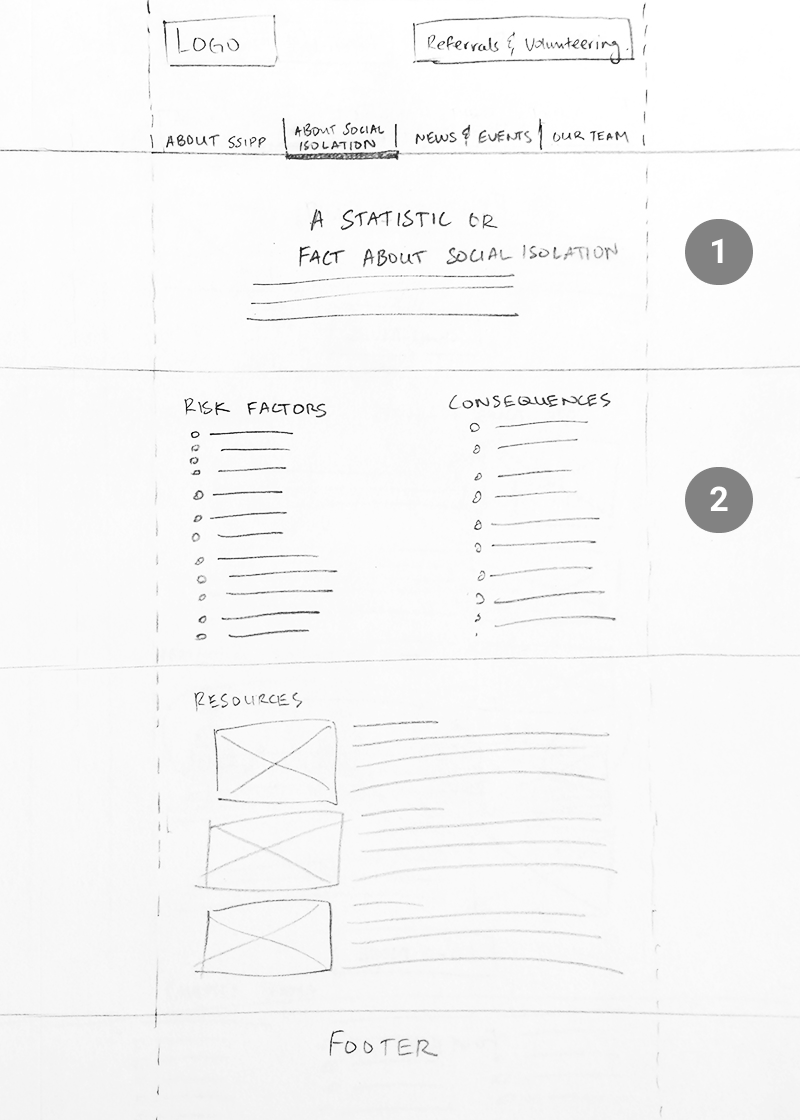 LOGO
Referrals & Volunteering
ABOUT SSIPP
ABOUT SOCIAL
ISOLATION
NEWS & EVENTS
OUR TEAM
A STATISTIC OR
FACT ABOUT SOCIAL ISOLATION
1
RISK FACTORS
CONSEQUENCES
2
RESOURCES
FOOTER